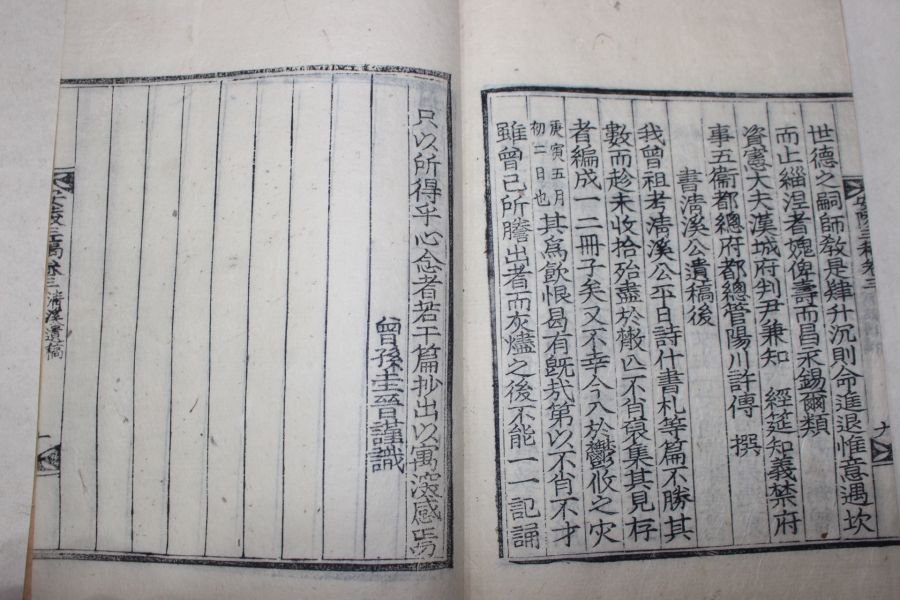 世德之嗣師敎是肆升沉則命進退惟意遇坎
而止緇涅者媿俾壽而昌永錫爾類
資憲大夫漢城府判尹兼知 經筵知義禁府
事五衞都總府都總管陽川許傳 撰
書淸溪公遺稿後
我曾祖考淸溪公平日詩什書札等篇不勝其
數而趁未收拾殆盡於散亾不肖裒集其見存
者編成一二冊子矣又不幸今入於鬱攸之灾
庚寅五月
初二日也
其爲飮恨曷有旣哉第以不肖不才
雖曾已所謄出者而灰燼之後不能一一記誦
只以所得乎心念者若干篇抄出以寓澁感焉
曾孫圭晉謹識
三稿卷三 淸溪遺稿